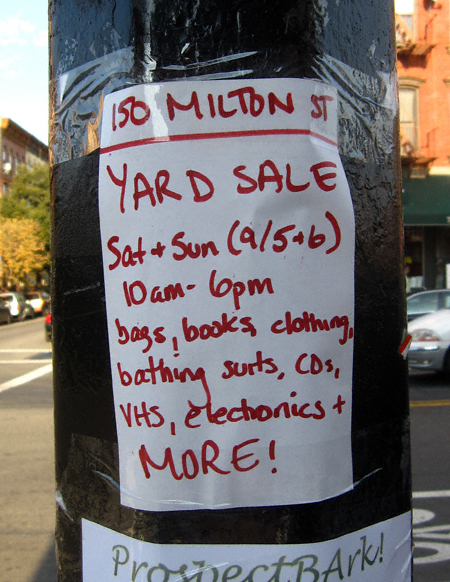 150 MILTON ST
YARD SALE
Sat + Sun (9/5+6)
10am - 6pm
bags, books, clothing,
bathing suits, CDs,
VHS, electronics +
MORE!
ProspectBArk!